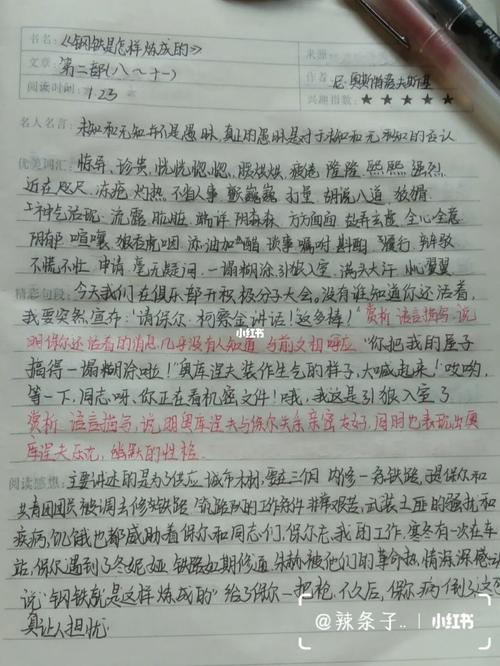 书名:《钢铁是怎样炼成的》
来源:
文章:第二部(八~十一)
作者:尼·奥斯特洛夫斯基
阅读时间:1.23
兴趣指数:★★★★★
名人名言:未知和无知并不是愚昧,真正的愚昧是对于未知和无知的否认
优美词汇:临车、珍贵、恍恍惚惚、暖烘烘、疲倦 隆隆 熙熙 强烈
近在咫尺 冻疮 灼热 不省人事 颤巍巍 打量 胡说八道 狼狈
神气活现 流露 肮脏 端详 阴森森 方方面面 故弄玄虚 全心全意
阴郁 喧嚷 狼吞虎咽 添油加醋 谈事 嘱咐 斟酌 慢行
不慌不忙 申请 毫无疑问 一塌糊涂 引狼入室 满头大汗
精彩句段:今天我们在俱乐部开积极分子大会。没有谁知道你还活着,
我要突然宣布:“请保尔·柯察金讲话!这多棒!”赏析:语言描写,说
明保尔还活着的消息几乎没有人知道,与前文相呼应 “你把我的屋子
搞得一塌糊涂啦!”奥库涅夫装作生气的样子,大喊起来!“哎哟,
等一下,同志呀,你正在看机密文件!哦,我这是引狼入室了
赏析:语言描写,说明奥库涅夫与保尔关系亲密友好,同时也表现出奥
库涅夫乐观,幽默的性格
阅读感想:主要讲述的是为了供应城市木材,要在三个月内修一条铁路,是保尔和
共青团团员被调去修筑铁路!筑路队的工作条件非常艰苦,武装土匪的骚扰和
疾病,饥饿也都威胁着保尔和同志们,保尔忘我的工作,寒冬有一次在车
站,保尔遇到了冬妮娅 铁路如期修通 朱赫被他们的革命热情深深感动
说“钢铁就是这样炼成的”给了保尔一把枪,不久后,保尔病倒了,这
真让人担忧
小红书
@辣条子.. | 小红书